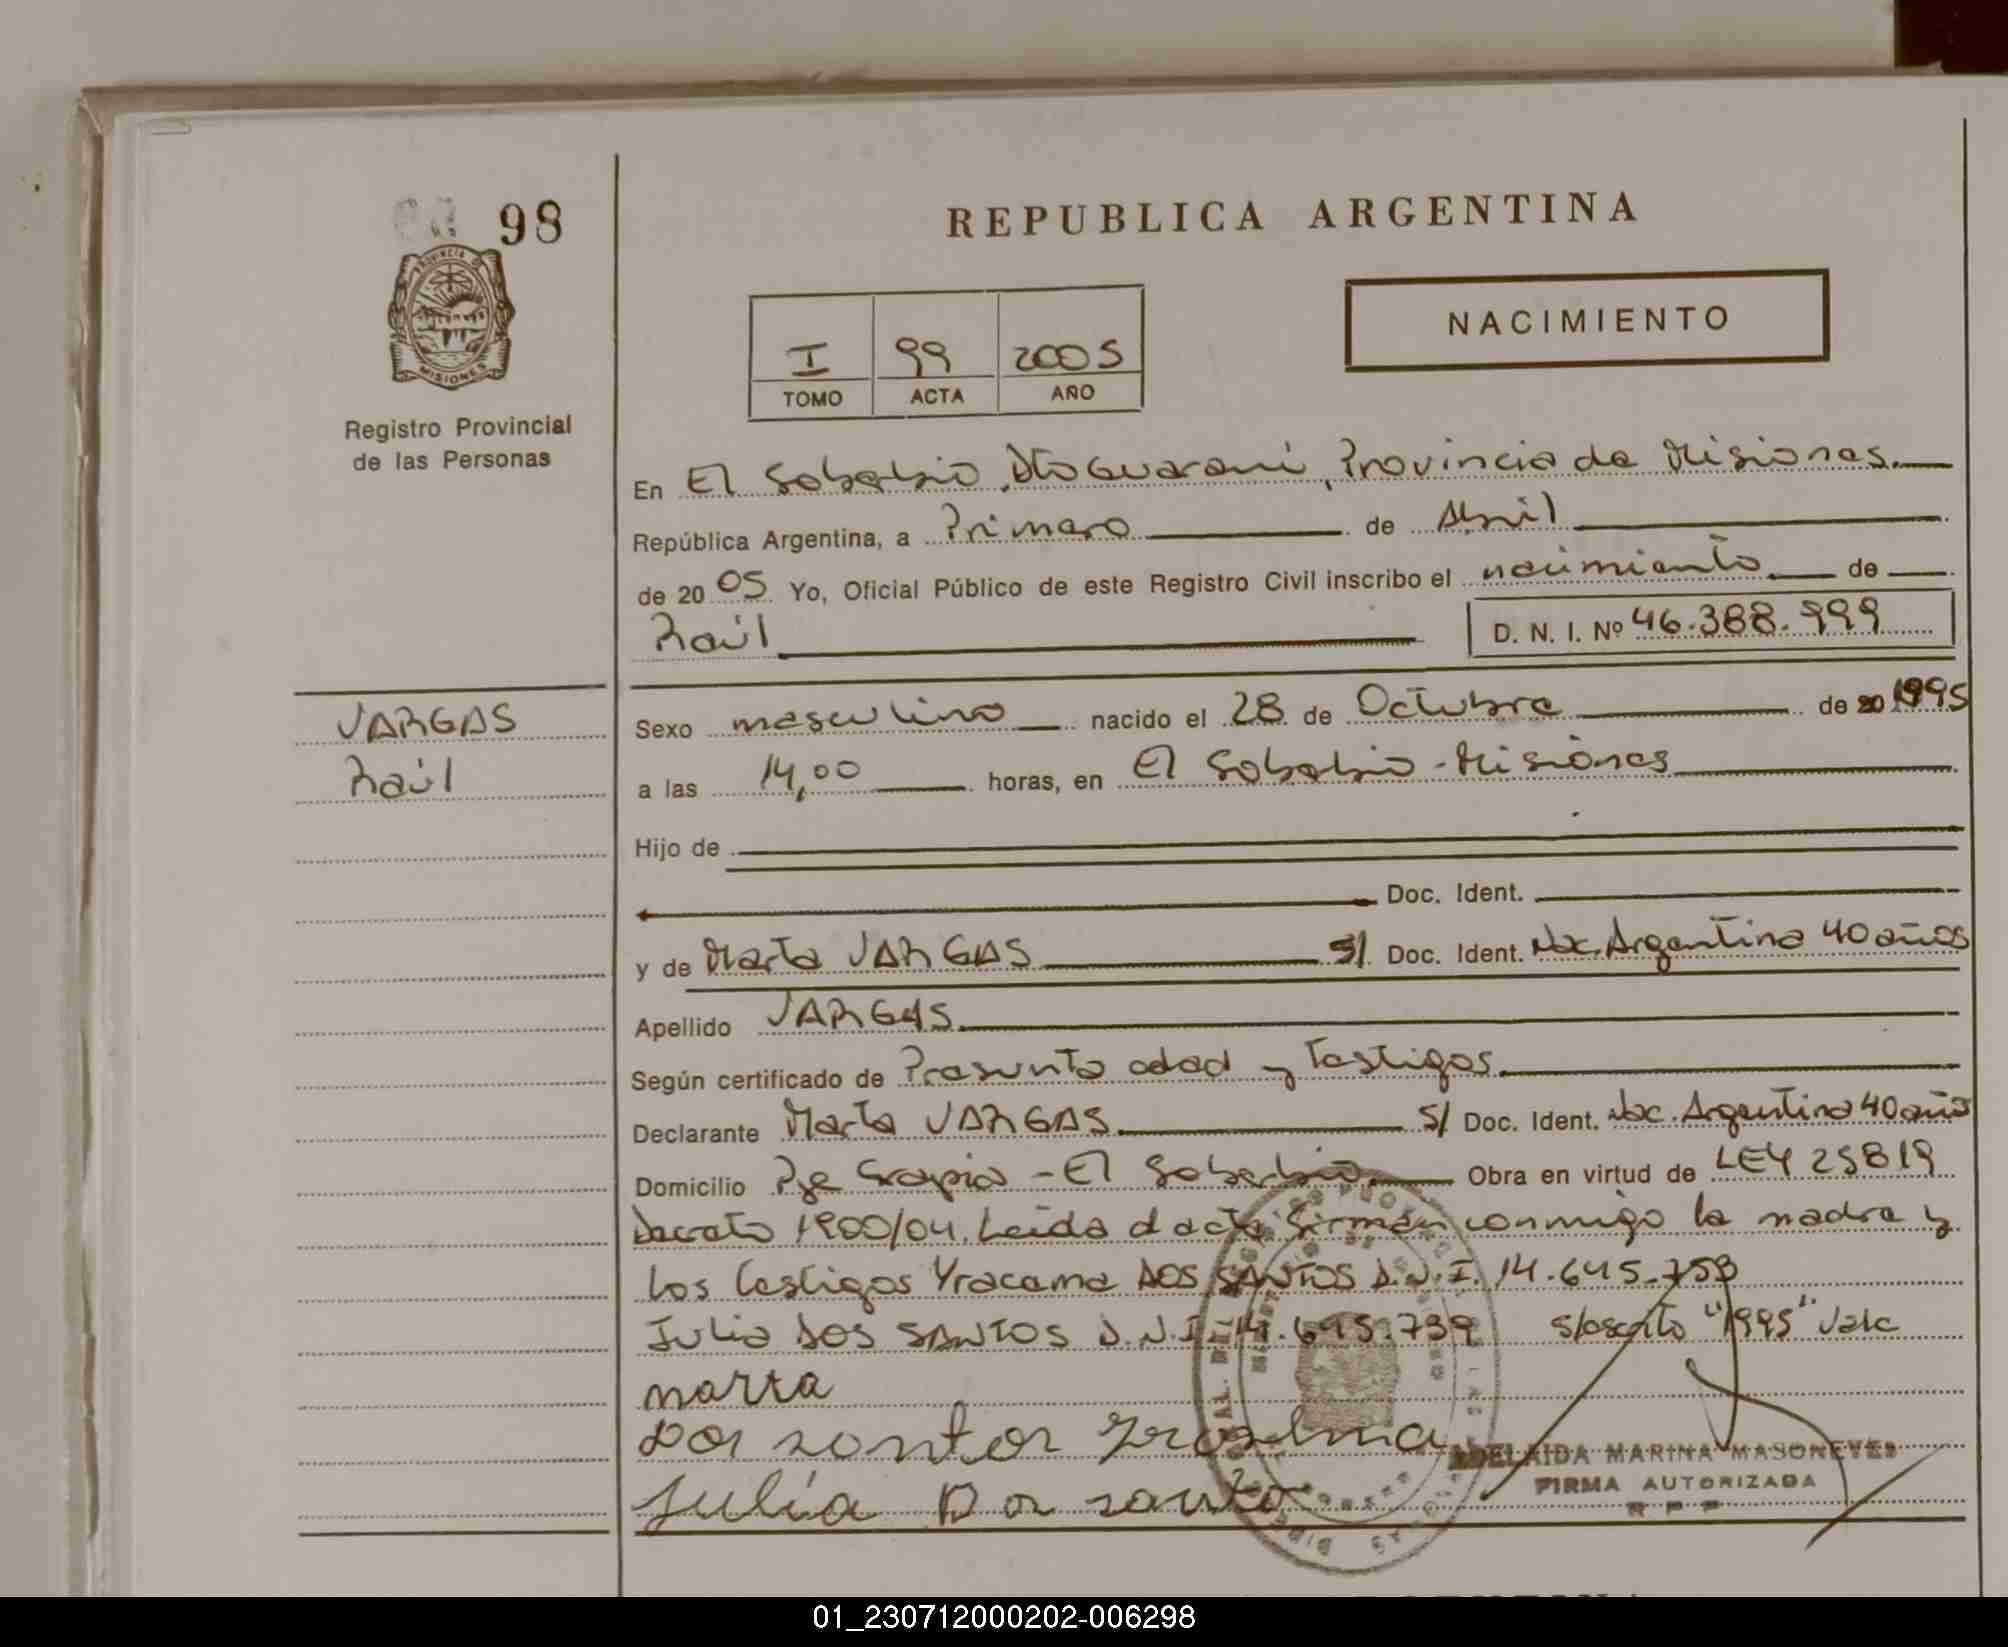 98
REPUBLICA ARGENTINA
PROVINCIA DE
MISIONES
NACIMIENTO
I 99 2005
TOMO ACTA AÑO
Registro Provincial
de las Personas
En El Soberbio, Dto Guaraní, Provincia de Misiones.
República Argentina, a Primero de Abril
de 2005 Yo, Oficial Público de este Registro Civil inscribo el nacimiento de
Raúl D. N. I. Nº 46.388.999
VARGAS
Raúl
Sexo masculino nacido el 28 de Octubre de 20 1995
a las 14,00 horas, en El Soberbio - Misiones
Hijo de
Doc. Ident.
y de Marta VARGAS S/ Doc. Ident. Nac. Argentina 40 años
Apellido VARGAS
Según certificado de Presunta edad y Testigos
Declarante Marta VARGAS S/ Doc. Ident. Nac. Argentina 40 años
Domicilio Pje Grapia - El Soberbio Obra en virtud de LEY 25819
Decreto 1900/04. Leída el acta firman conmigo la madre y
los testigos Yracema DOS SANTOS D.N.I. 14.645.753
Julia DOS SANTOS D.N.I. 14.645.739 s/oscrito "1995" Vale
marta
Dos santos
Julia Dos santo
ADELAIDA MARINA MASONEVES
FIRMA AUTORIZADA
R P P
01_230712000202-006298